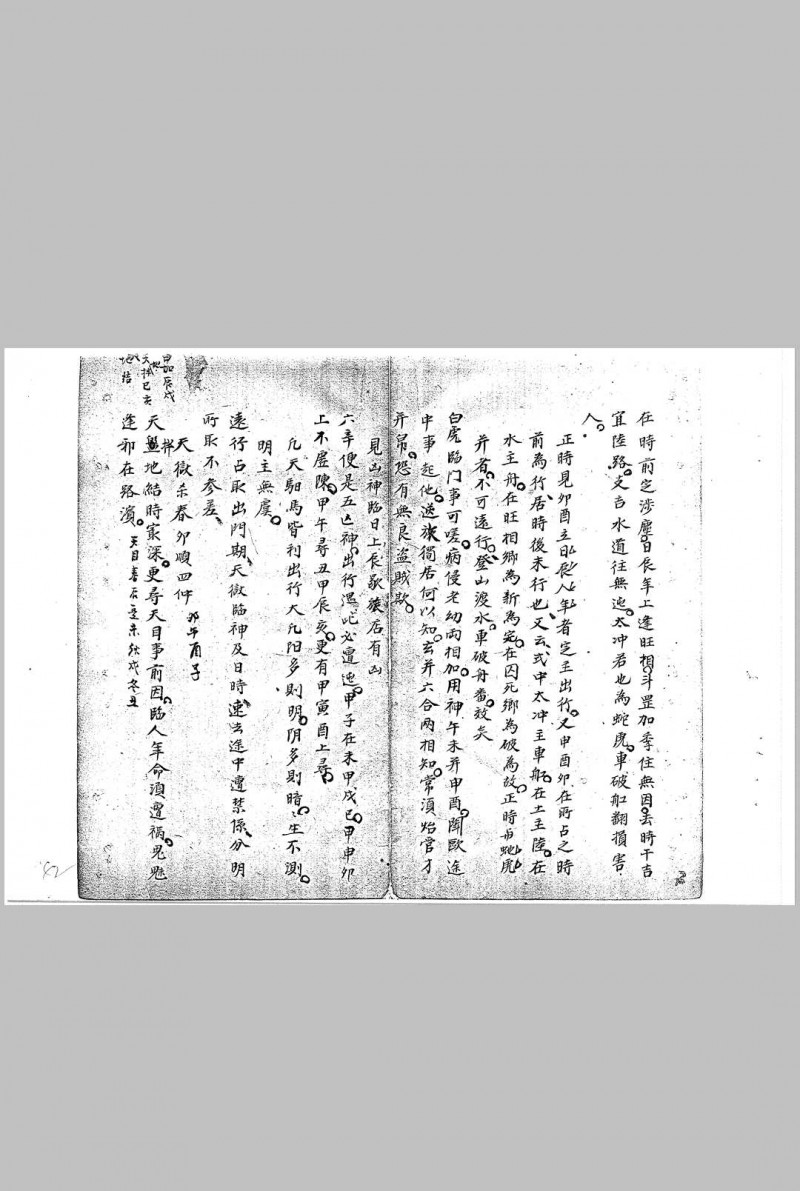 在時前定涉塵。日辰年上逢旺相。斗罡加季住無因。去時干吉
宜陸路。又言水道往無迍。太冲若也為蛇虎。車破舡翻損害
人。
正時見卯酉立日辰人年者定主出行。又申酉卯在所占之時
前為行居時後未行也。又云、式中太冲主車舡。在土主陸。在
水主舟。在旺相鄉為新為完。在囚死鄉為破為故。正時 蛇虎
并者。不可遠行。登山渡水。車破舟番。效矣
白虎臨門事可嗟。病侵老幼兩相加。用神午未并申酉。鬪歐途
中事起他。逃旅獨居何以知。玄并六合兩相知。常須始官才
并吊。恐有無良盗賊欺。
見凶神臨日上辰歇旅居有凶
六辛便是五亡神。出行遇此必遭迍。甲子在未甲戌巳。甲申卯
上不虛陳。甲午尋丑甲辰亥。更有甲寅酉上尋。
凡天馹馬皆利出行大凡阳多則明。阴多則暗、生不測。
明主無虞。
遠行占取出門期、天獄臨神及日時、速去途中遭禁係、分明
所取不参差、
天獄杀春卯順四仲 卯午酉子
天盤地結時寔深。更尋天目事前因。臨人年命須遭禍。鬼魅
逢邪在路濱。天目春辰夏未秋戌冬丑